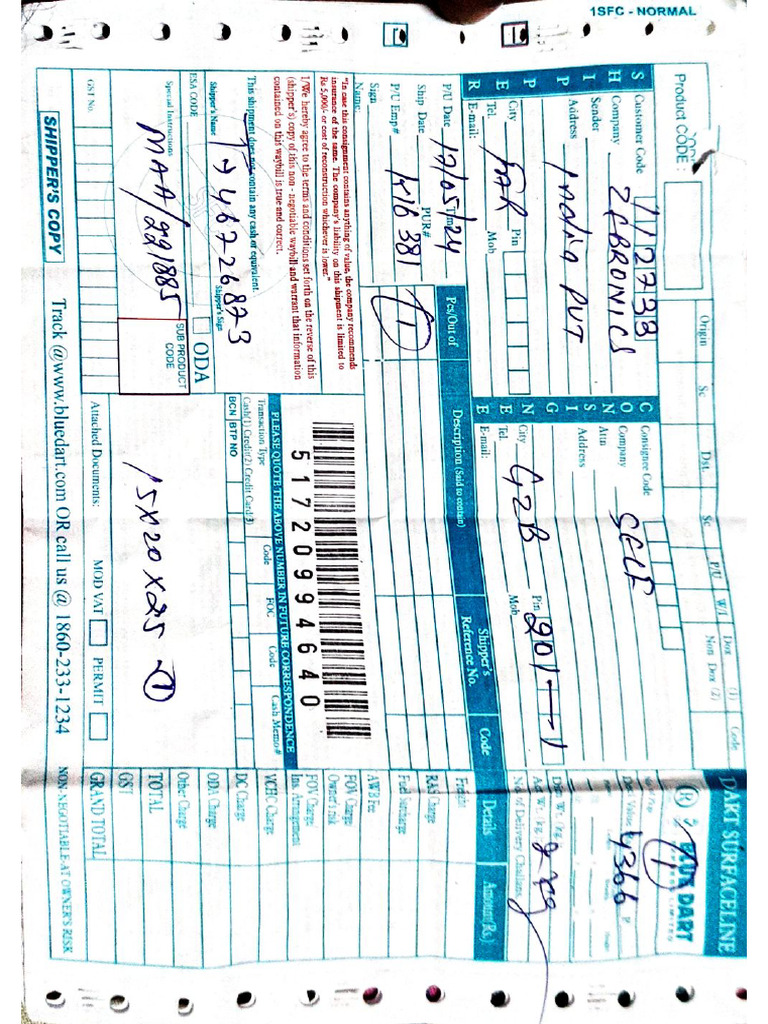 1SFC - NORMAL
DART SURFACELINE
BLUE DART
Product CODE :
Origin Sc Dst. Sc P/U W/I Dox (1) Code
Non Dox (2)
SHIPPER
Customer Code 112733
Company ZEBRONICS
Sender India PVT
Address
City Pin
Tel. Mob
E-mail:
CONSIGNEE
Consignee Code
Company SELF
Attn
Address
City GZB Pin 201
Tel. Mob
E-mail:
4366
Act Wt. kg.
No. of Delivery Challans
P/U Date 17/05/24
Ship Date PUR#
P/U Emp# 1416381
Sign
Name:
Pcs/Out of Description (Said to contain) Shipper's Reference No. Code Details Amount(Rs.)
1
"In case this consignment contains anything of value, the company recommends
insurance of the same. The company's liability on this shipment is limited to
Rs 5,000/- or cost of reconstruction whichever is lower."
I/We hereby agree to the terms and conditions set forth on the reverse of this
(shipper's) copy of this non - negotiable waybill and warrant that information
contained on this waybill is true and correct.
This shipment does not contain any cash or equivalent.
Shipper's Name Shipper's Sign
46726873
51720994640
PLEASE QUOTE THE ABOVE NUMBER IN FUTURE CORRESPONDENCE
Transaction Type Code FOC Code Cash Memo#
Cash(1) Credit(2) Credit Card(3)
BCN BTP NO
ESA CODE
ODA
SUB PRODUCT
CODE
Special Instructions
MAA/221885
15X20X25 1
GST No.
Attached Documents: MOD VAT PERMIT
SHIPPER'S COPY
Track @www.bluedart.com OR call us @ 1860-233-1234
NON-NEGOTIABLE AT OWNER'S RISK
Freight
RAS Charge
Fuel Surcharge
AWB Fee
FOV Charge
Owner's Risk
FOV Charge
Ins. Arrangement
VCHC Charge
DC Charge
ODA Charge
Other Charge
TOTAL
GST
GRAND TOTAL